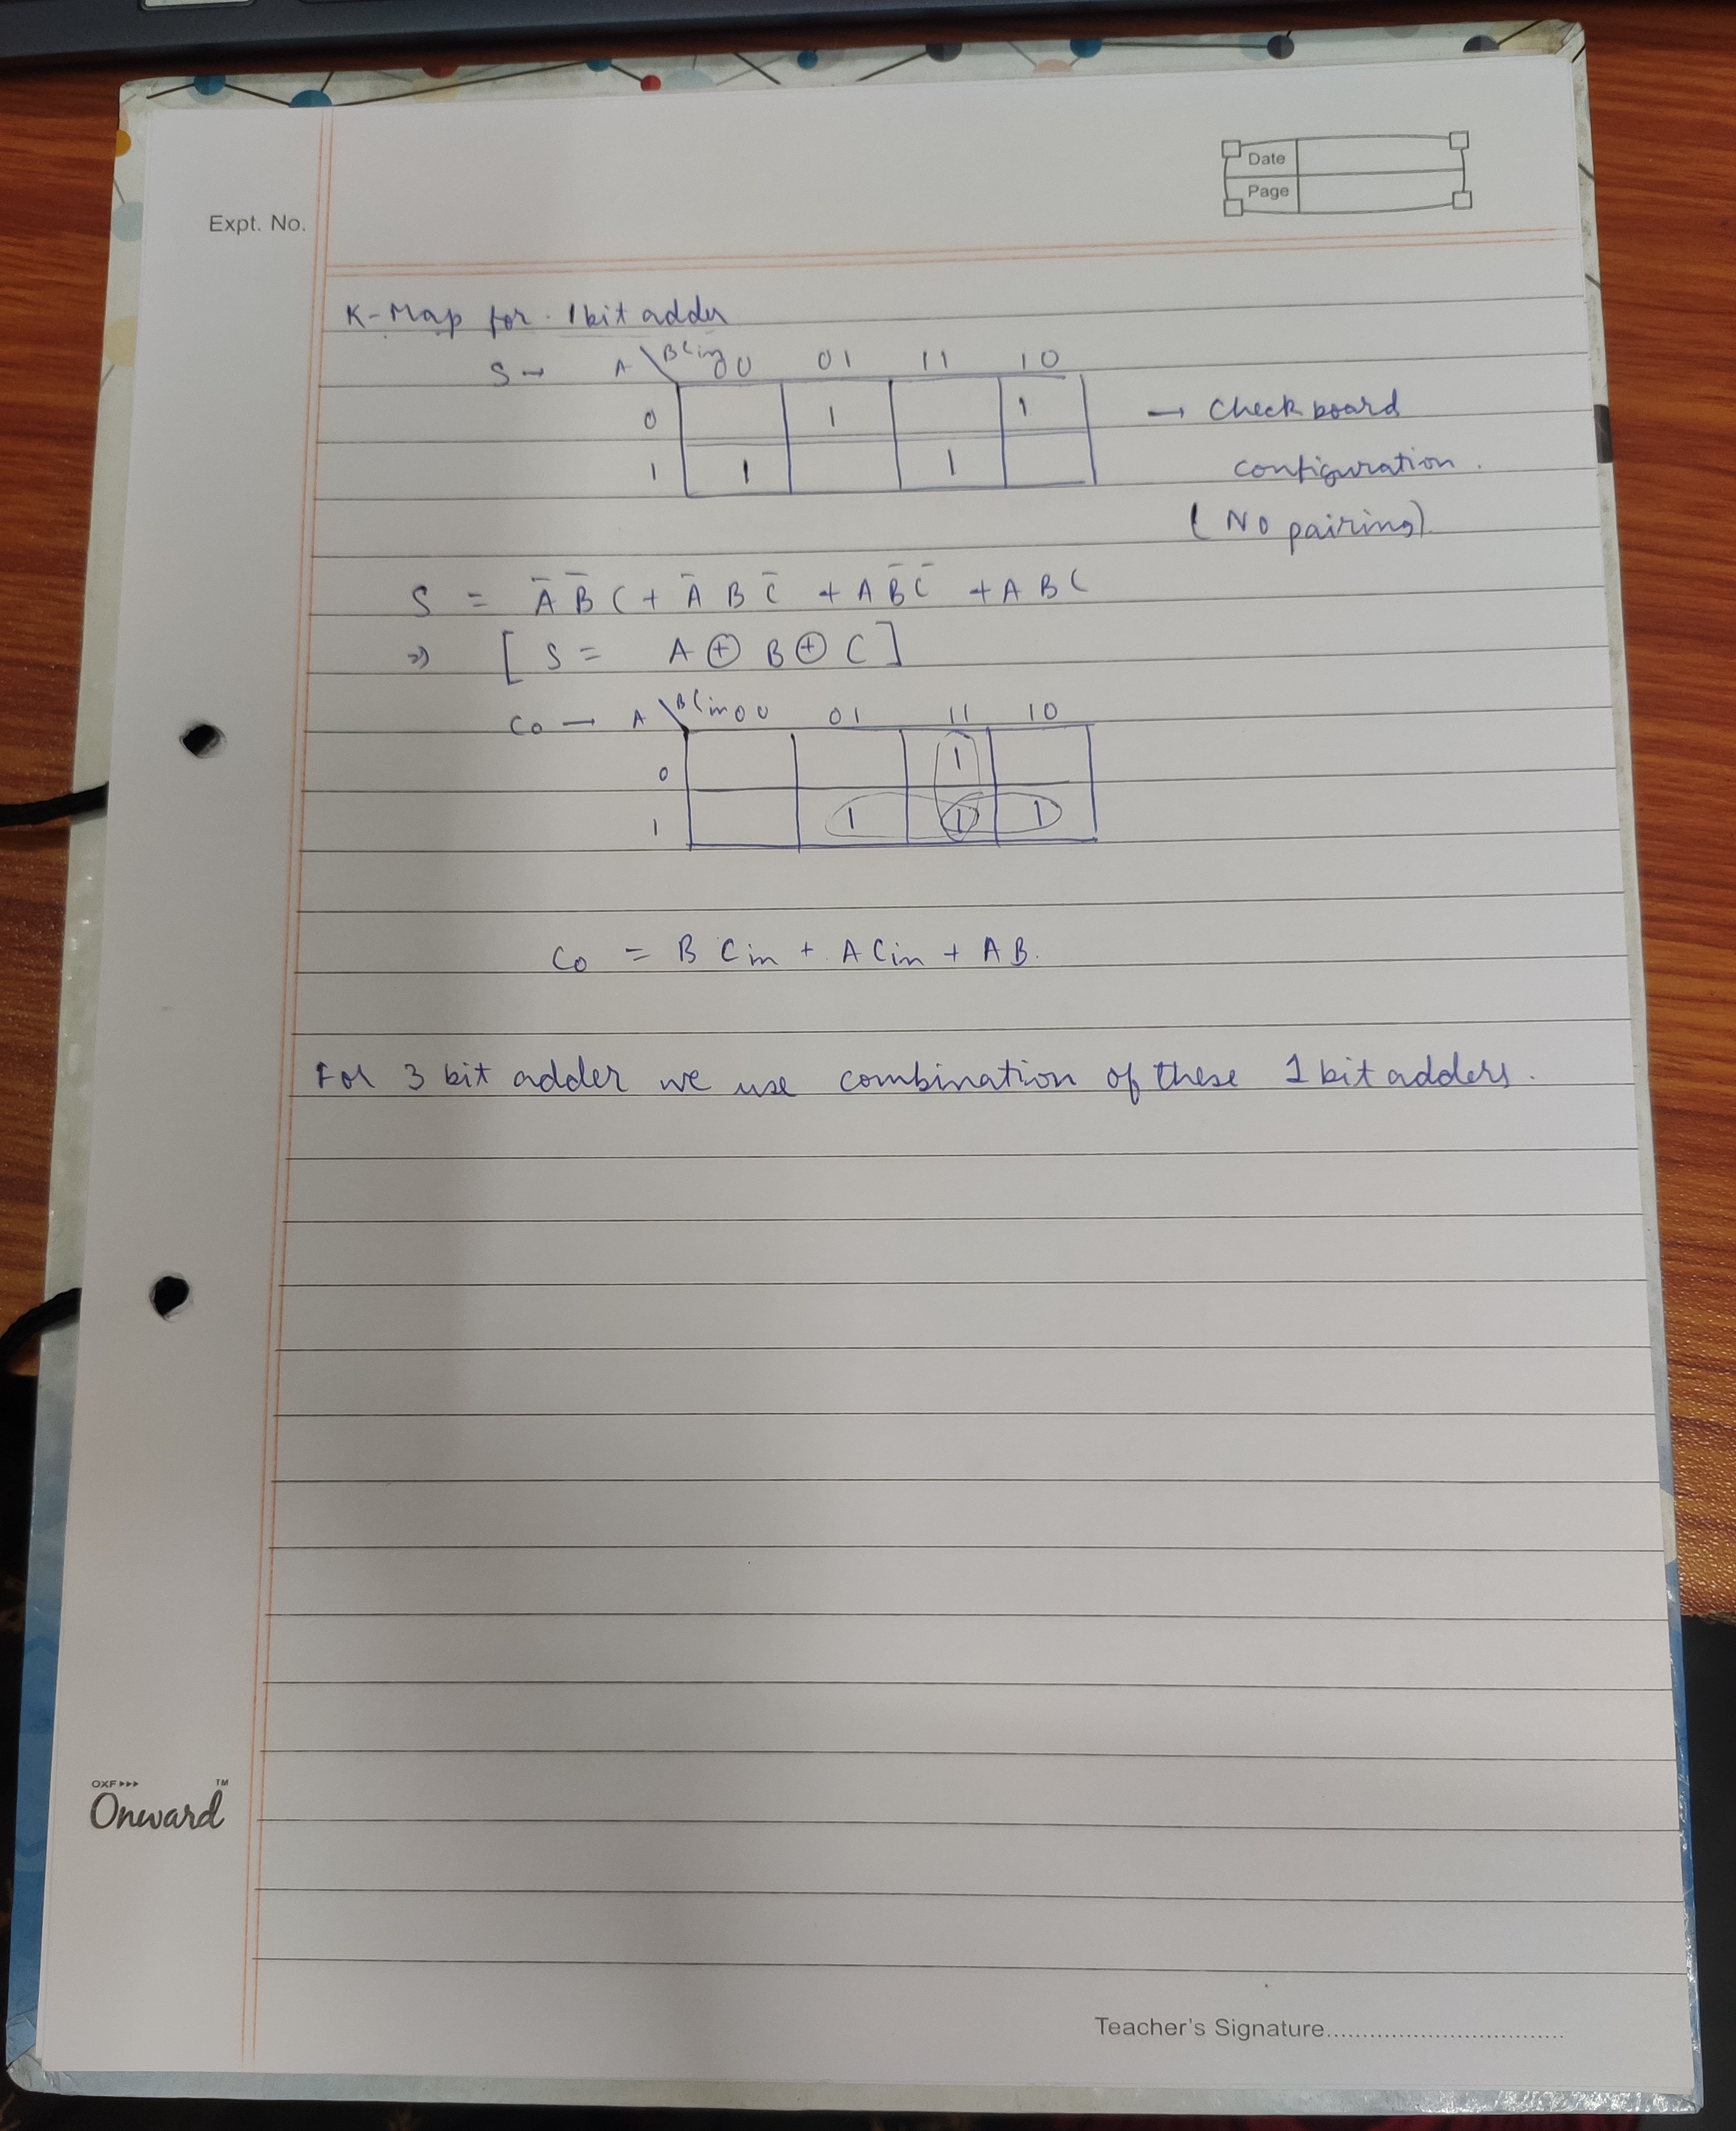 Date
Page
Expt. No.
K-Map for 1 bit adder
S → A \ BCin 00 01 11 10
0 1 1 → Check board
1 1 1 configuration.
(No pairing)
S = A̅ B̅ C + A̅ B C̅ + A B̅ C̅ + A B C
⇒ [ S = A ⊕ B ⊕ C ]
Co → A \ BCin 00 01 11 10
0 1
1 1 1 1
Co = B Cin + A Cin + A B.
For 3 bit adder we use combination of these 1 bit adders.
OXF▸▸▸ TM
Onward
Teacher's Signature.................................